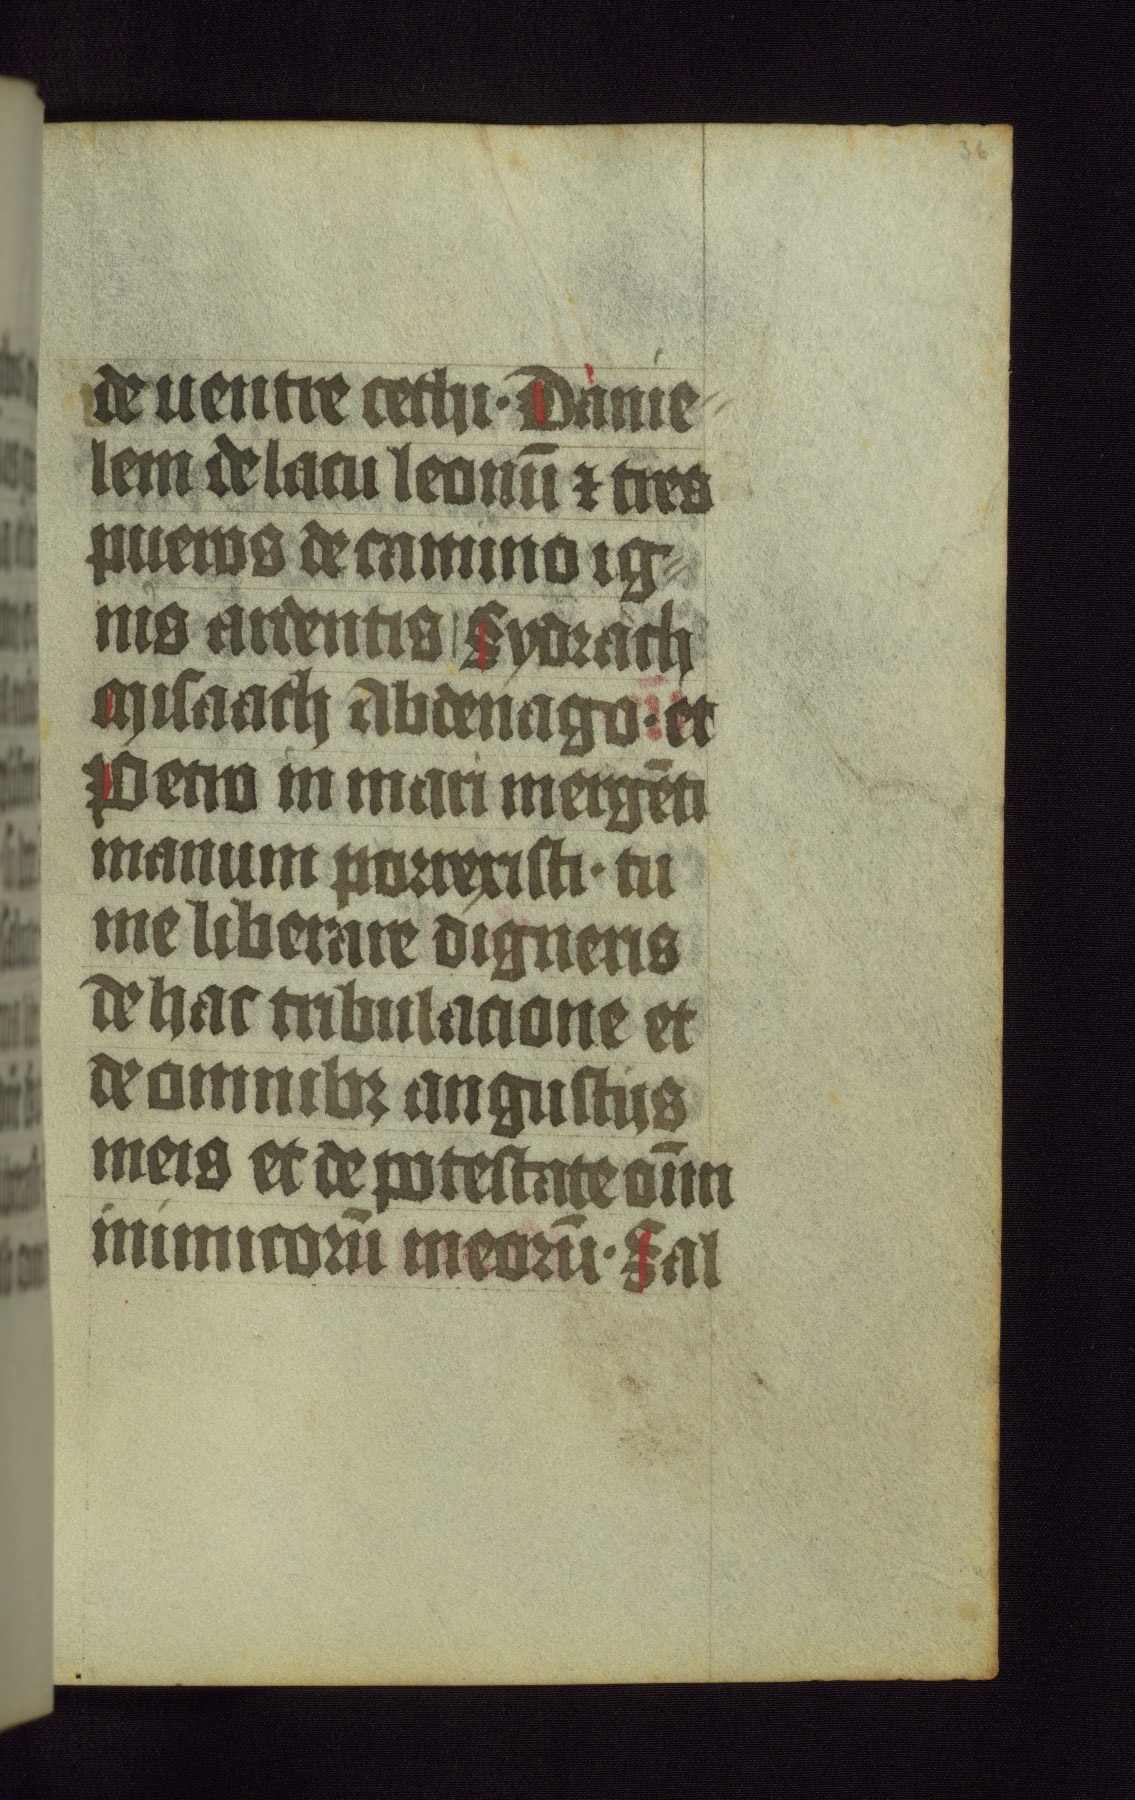 36
de uentre cethi · Danie
lem de lacu leonū ⁊ tres
pueros de camino ig
nis ardentis Sydrach
Misaach Abdenago · et
Petro in mari mergēti
manum porrexisti · tu
me liberare digneris
de hac tribulacione et
de omnibꝫ angustijs
meis et de potestate oīm
inimicorū meorū · Sal